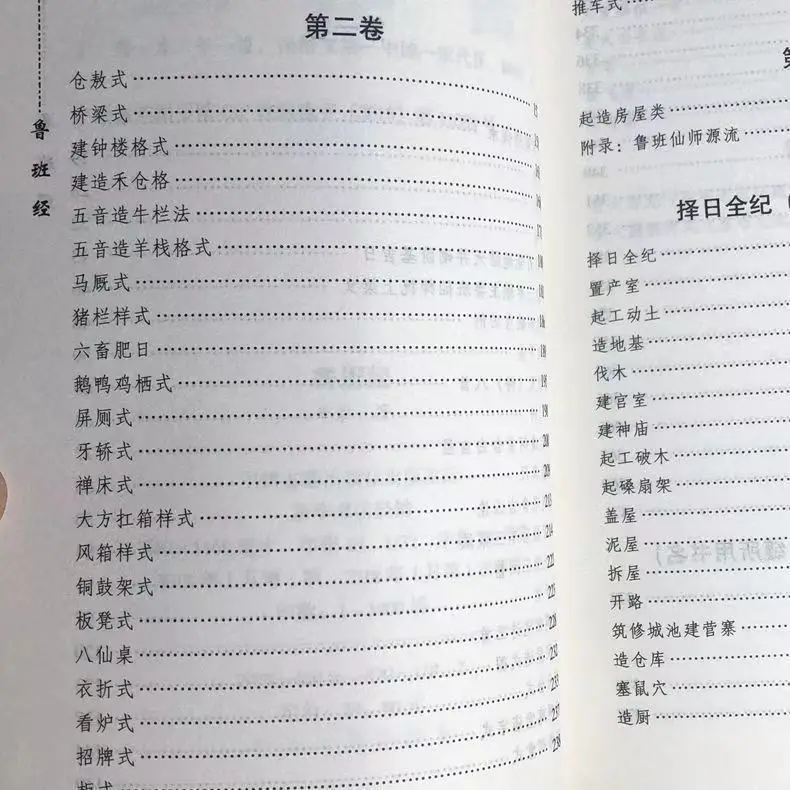 鲁班经
第二卷
仓敖式
桥梁式
建钟楼格式
建造禾仓格
五音造牛栏法
五音造羊栈格式
马厩式
猪栏样式
六畜肥日
鹅鸭鸡栖式
屏厕式
牙轿式
禅床式
大方扛箱样式
风箱样式
铜鼓架式
板凳式
八仙桌
衣折式
看炉式
招牌式
推车式
第
起造房屋类
附录：鲁班仙师源流
择日全纪（
择日全纪
置产室
起工动土
造地基
伐木
建宫室
建神庙
起工破木
起磉扇架
盖屋
泥屋
拆屋
开路
筑修城池建营寨
造仓库
塞鼠穴
造厨